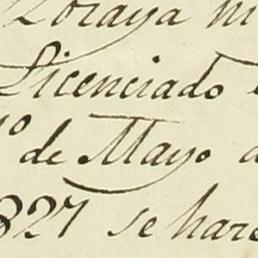 Zoraya ni
Licenciado
1º de Mayo d
1827 se hare